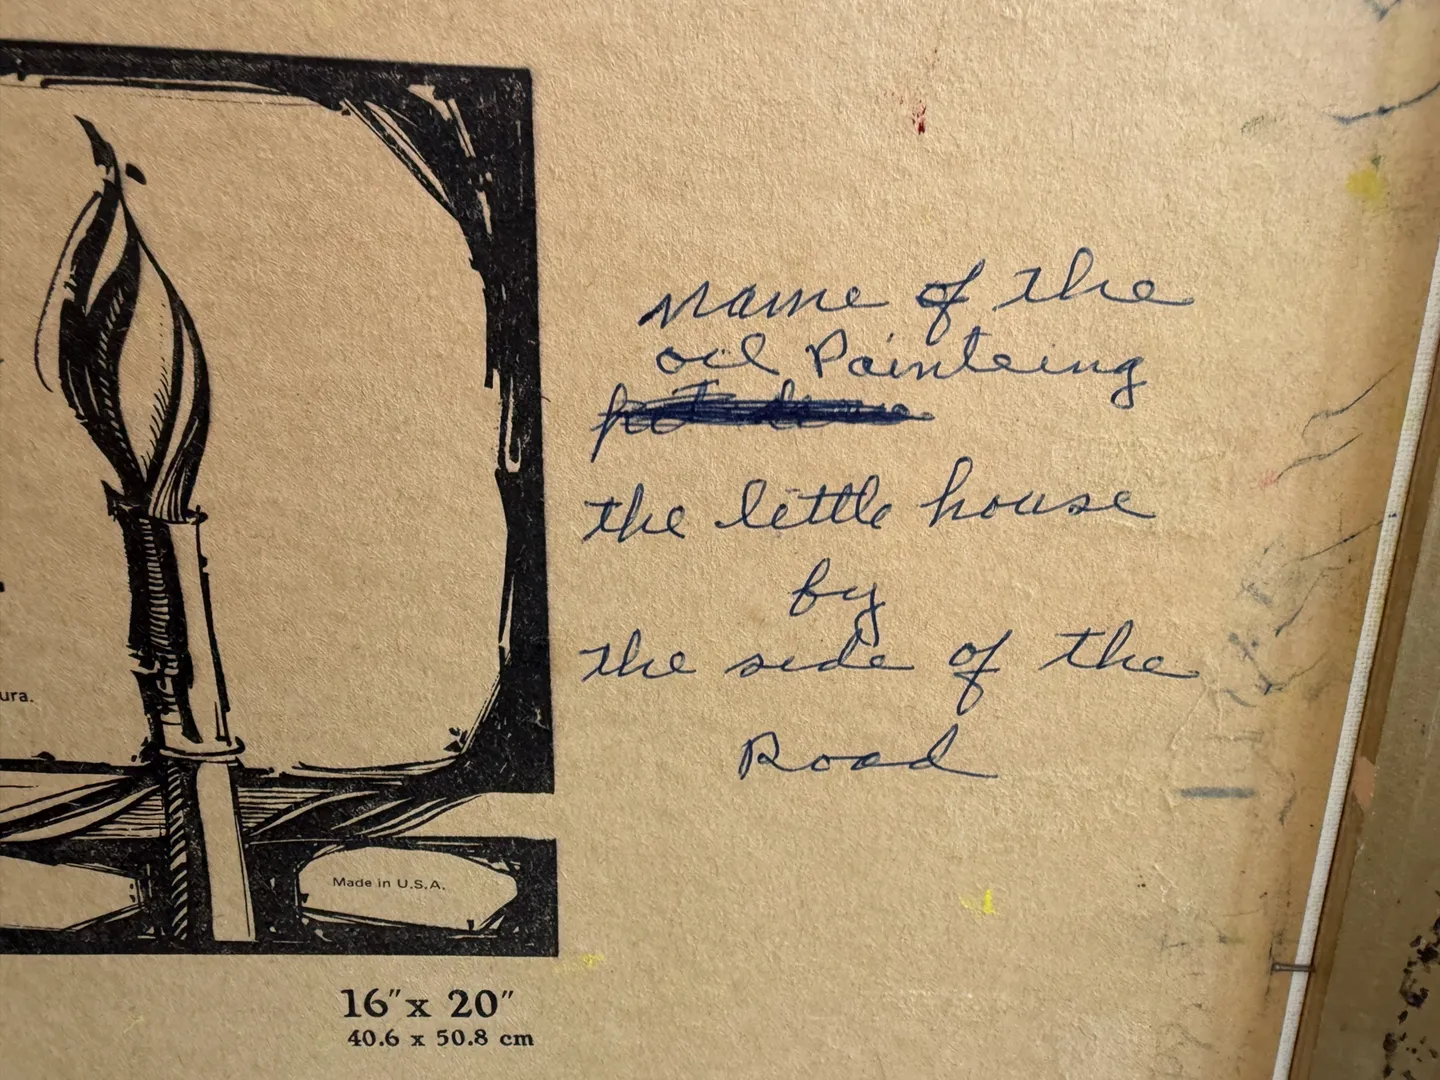 name of the
oil Painteing
the little house
by
the side of the
Road
ura.
Made in U.S.A.
16" x 20"
40.6 x 50.8 cm